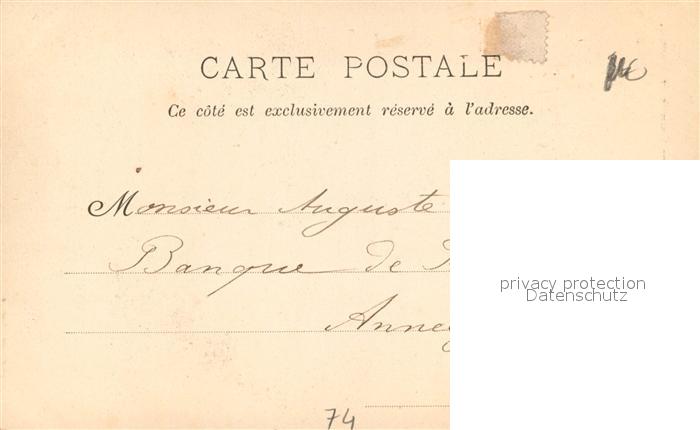 CARTE POSTALE
Ce côté est exclusivement réservé à l'adresse.
Monsieur Auguste
Banque de
privacy protection
Datenschutz
74